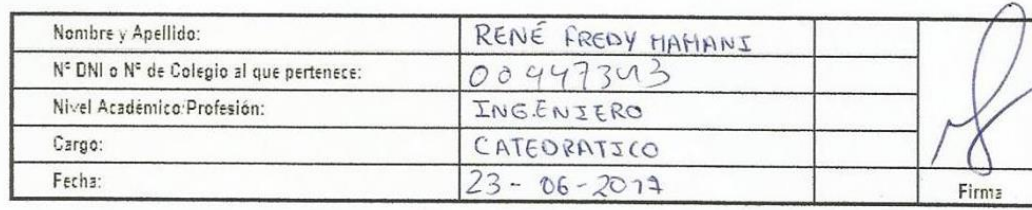 Nombre y Apellido: RENÉ FREDY MAMANI
N° DNI o N° de Colegio al que pertenece: 00447343
Nivel Académico/Profesión: INGENIERO
Cargo: CATEDRATICO
Fecha: 23 - 06 - 2017
Firma